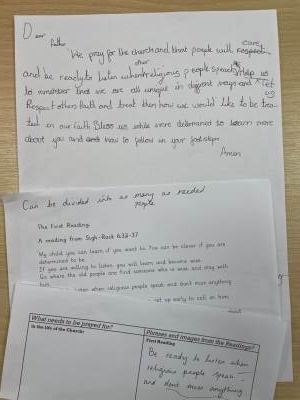 Dear
Father
We pray for the church and that people will respect care
other
and be ready to listen when religious people speak. Help us
to remember that we are all unique in different ways and let us
Respect others faith and treat them how we would like to be trea-
ted in our faith. Bless us while were determined to learn more
about you and how to follow in your footsteps.
Amen
Can be divided into as many as needed
people
The First Reading
A reading from Sirach 6:32-37
My child you can learn if you want to. You can be clever if you are
determined to be.
If you are willing to listen, you will learn and become wise.
Go where the old people are find someone who is wise, and stay with
him.
listen when religious people speak and don't miss anything
get up early to call on him
What needs to be prayed for?
In the life of the Church:
Phrases and images from the Readings?
First Reading
Be ready to listen when
religious people speak
and dont miss anything